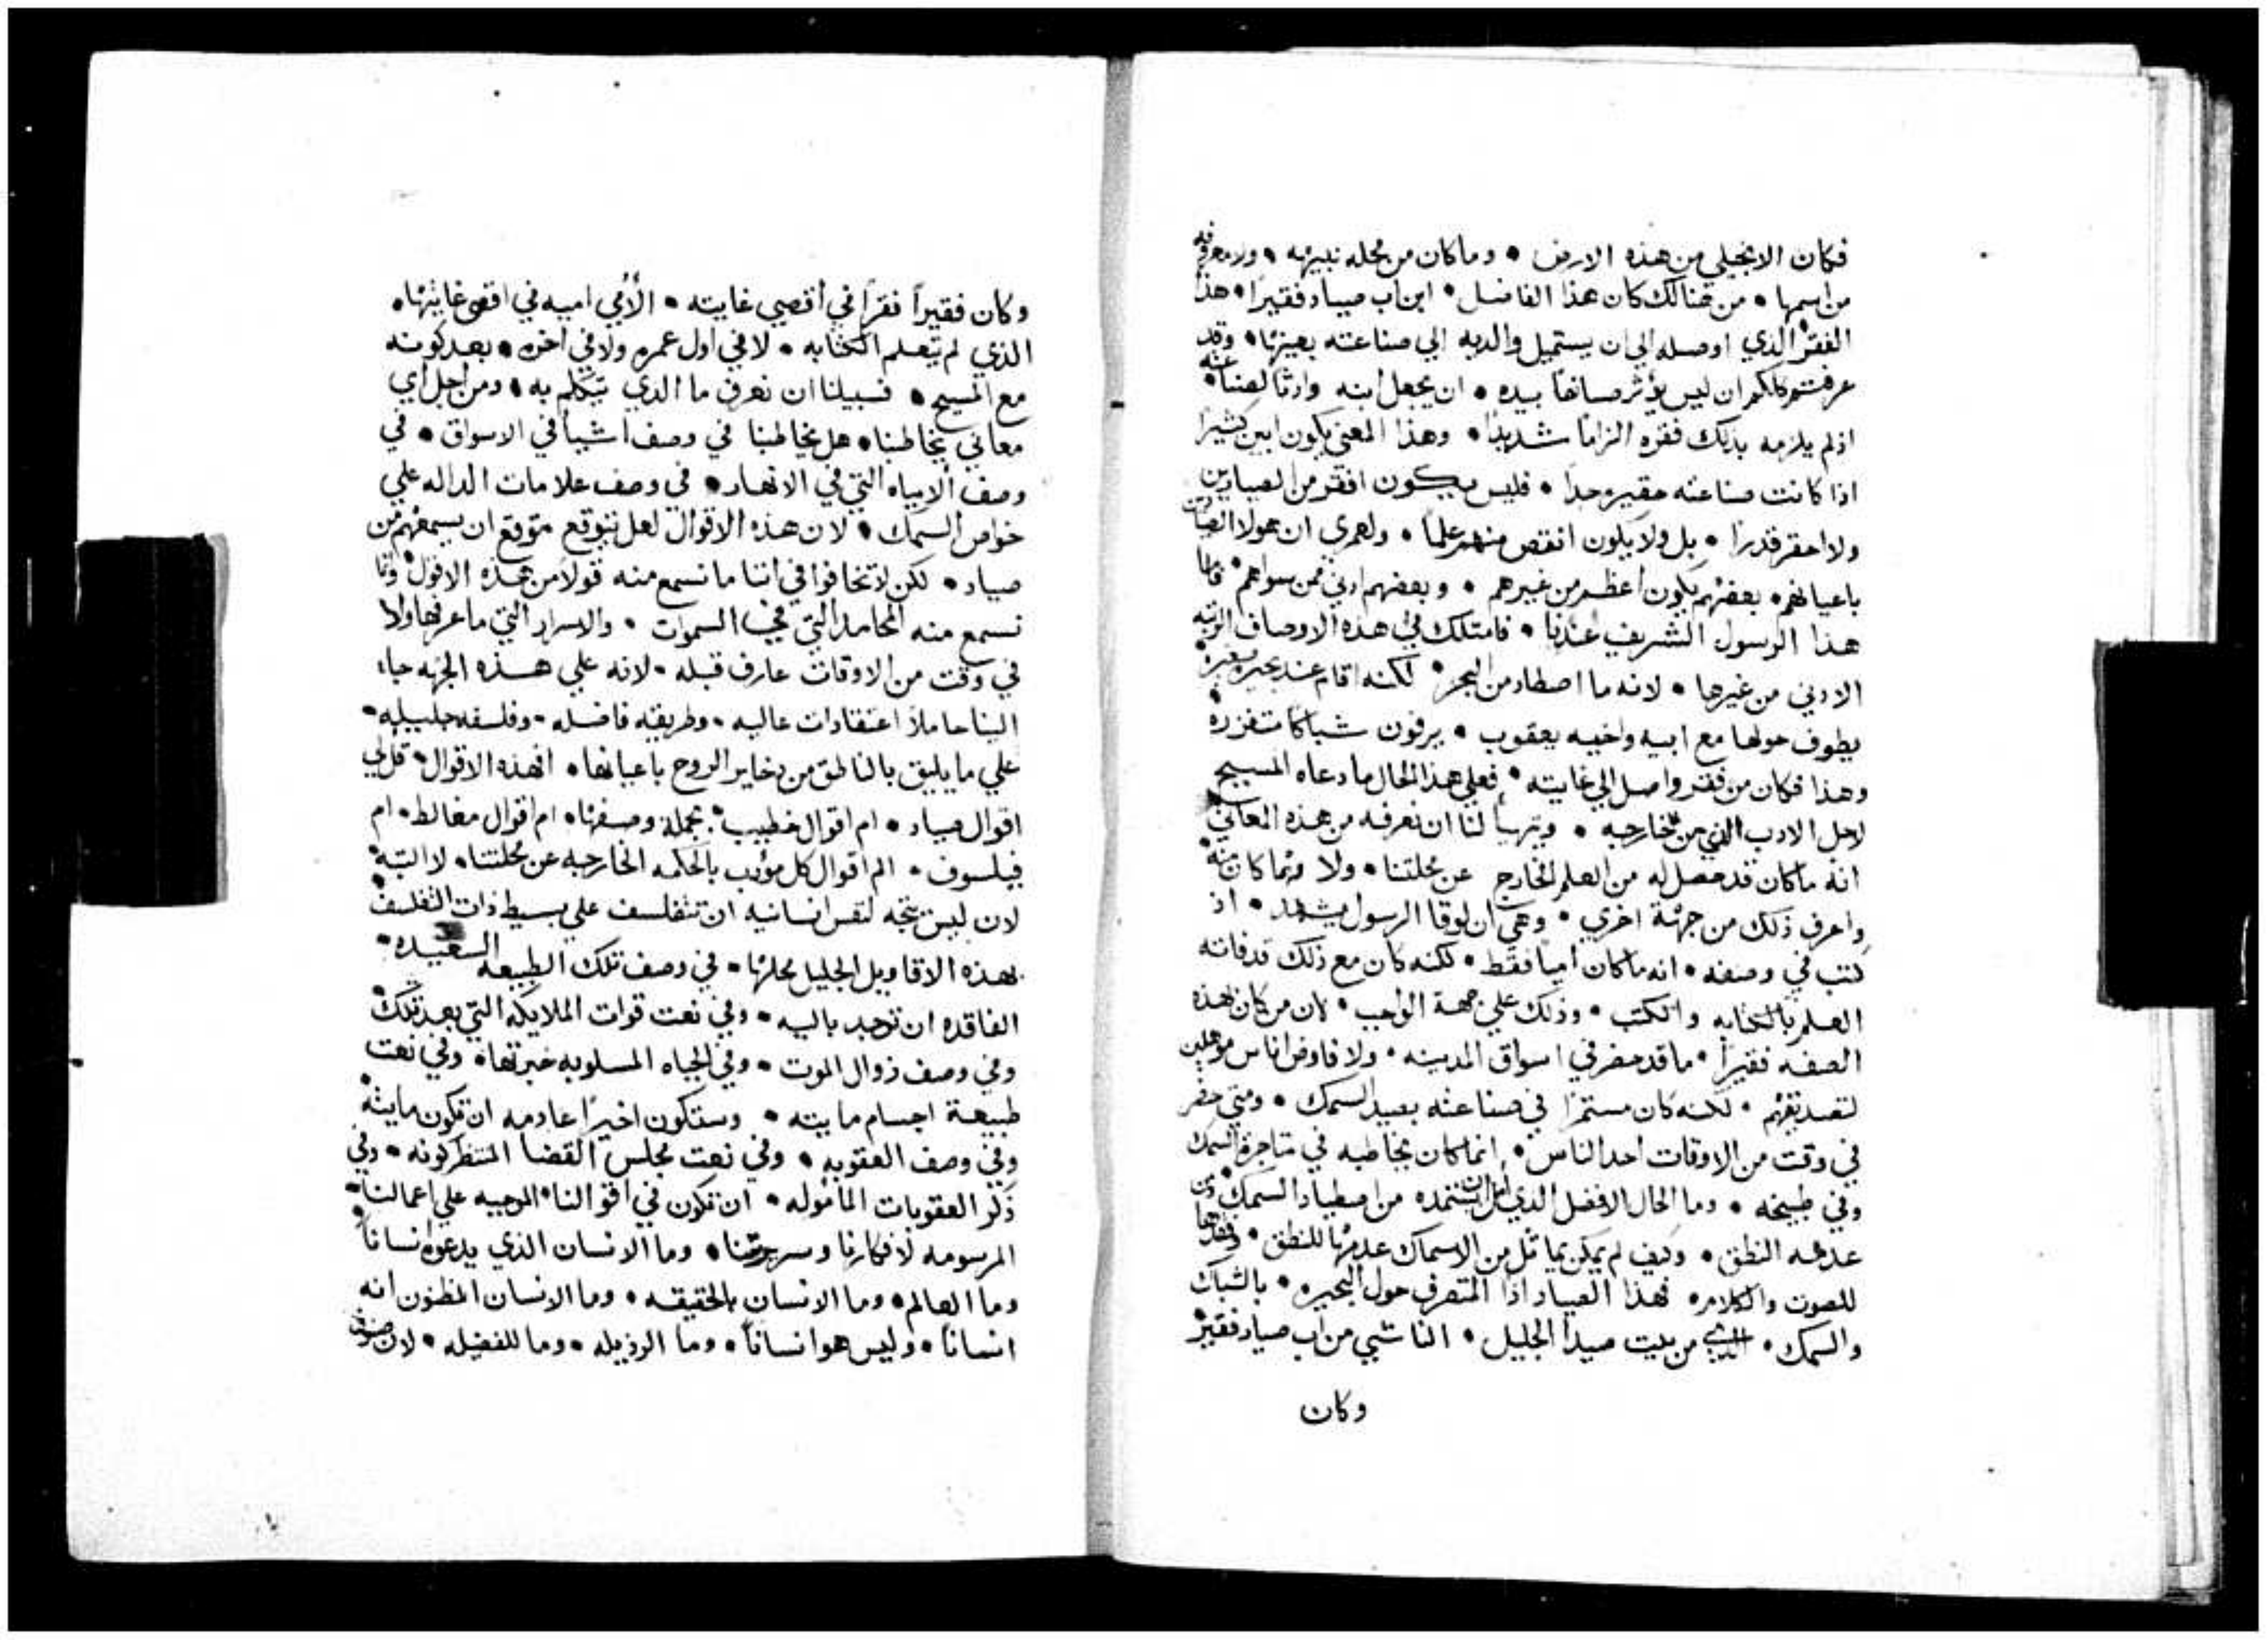 فكان الانجيلي من هذه الارض • وما كان من محله نبيهه • ولا معروفه
من اسمها • من هنالك كان هذا الفاضل • ابن اب صياد فقيرا • هذا
الفقر الذي اوصله الي ان يستميل والديه الي صناعته بعينها • وقد
عرفتم كلكم ان ليس يؤثر صانعا بيده • ان يجعل ابنه وارثا لصناعته
اذ لم يلزمه بذلك فقره الزاما شديدا • وهذا المعني يكون ابين كثيرا
اذا كانت صناعته حقيره جدا • فليس يكون افقر من الصيادين
ولا احقر قدرا • بل ولا يكون انقص منهم علما • ولعمري ان هولا الصيادين
باعيانهم • بعضهم يكون اعظم من غيرهم • وبعضهم ادني ممن سواهم • فاما
هذا الرسول الشريف عندنا • فامتلك في هذه الاوصاف الرتبه
الادني من غيرها • لانه ما اصطاد من البحر • لكنه اقام عند بحيره صغيره
يطوف حولها مع ابيه واخيه يعقوب • يرفون شباكا متفزره
وهذا فكان من فقر واصل الي غايته • فعلي هذا الحال ما دعاه المسيح
لاجل الادب الذي من خارجه • ويتهيأ لنا ان نعرفه من هذه المعاني
انه ما كان قد حصل له من العلم الخارج عن محلتنا • ولا وهما كان منه
واعرف ذلك من جهة اخري • وهي ان لوقا الرسول يشهد • اذ
كتب في وصفه • انه ما كان أميا فقط • لكنه كان مع ذلك قد فاته
العلم بالكتابه والكتب • وذلك علي جهة الواجب • لان من كان بهذه
الصفه فقيرا • ما قد حضر في اسواق المدينه • ولا فاوض اناس موهلين
لتصديقهم • لكنه كان مستمرا في صناعته بصيد السمك • ومتي حضر
في وقت من الاوقات احد الناس • انما كان يخاطبه في متاجرة السمك
وفي طبيخه • وما الحال الافضل الذي من اصطياد السمك
عدمه النطق • وكيف لم يكن يماثل من الاسماك عدمها للنطق •
للصوت والكلام • فهذا الصياد اذا المتصرف حول البحيره • بالشباك
والسمك • الذي من بيت صيدا الجليل • الناشي من اب صياد فقير
وكان
وكان فقيراً فقراً في أقصي غايته • الأُمي اميه في اقصي غايتها •
الذي لم يتعلم الكتابه • لا في اول عمره ولا في اخره • بعد كونه
مع المسيح • فسبيلنا ان نعرف ما الذي يتكلم به • ومن اجل اي
معاني يخاطبنا • هل يخاطبنا في وصف اشيأ في الاسواق • في
وصف الامياه التي في الانهار • في وصف علامات الداله علي
خواص السمك • لان هذه الاقوال لعل يتوقع متوقع ان يسمعهم من
صياد • لكن لا تخافوا في اننا ما نسمع منه قولا من هذه الاقوال وانما
نسمع منه المحامد التي في السموات • والاسرار التي ما عرفها ولا
في وقت من الاوقات عارف قبله • لانه علي هذه الجهه جاء
الينا حاملا اعتقادات عاليه • وطريقه فاضله • وفلسفه جليليه •
علي ما يليق بالناطق من ذخاير الروح باعيانها • افهذه الاقوال • قل لي
اقوال صياد • ام اقوال خطيب • بجملة وصفها • ام اقوال مغالط • ام
فيلسوف • ام اقوال كل مؤدب بالحكمه الخارجه عن محلتنا • لا البته
لان ليس يتجه لنفس انسانيه ان تتفلسف علي بسيط ذات التفلسف
بهذه الاقاويل الجليل محلها • في وصف تلك الطبيعه السعيده •
الفاقده ان توجد باليه • وفي نعت قوات الملايكه التي بعد تلك
وفي وصف زوال الموت • وفي الحياه المسلوبه غيرتها • وفي نعت
طبيعة اجسام مايته • وستكون اخيرا عادمه ان تكون مايته
وفي وصف العقوبه • وفي نعت مجلس القضا المنتظر كونه • وفي
ذكر العقوبات المأموله • ان تكون في اقوالنا • الموجبه علي اعمالنا •
المرسومه لافكارنا وسريرتنا • وما الانسان الذي يدعوه انسانا
وما العالم • وما الانسان بالحقيقه • وما الانسان المظنون انه
انسانا • وليس هو انسانا • وما الرذيله • وما للفضيله • لان